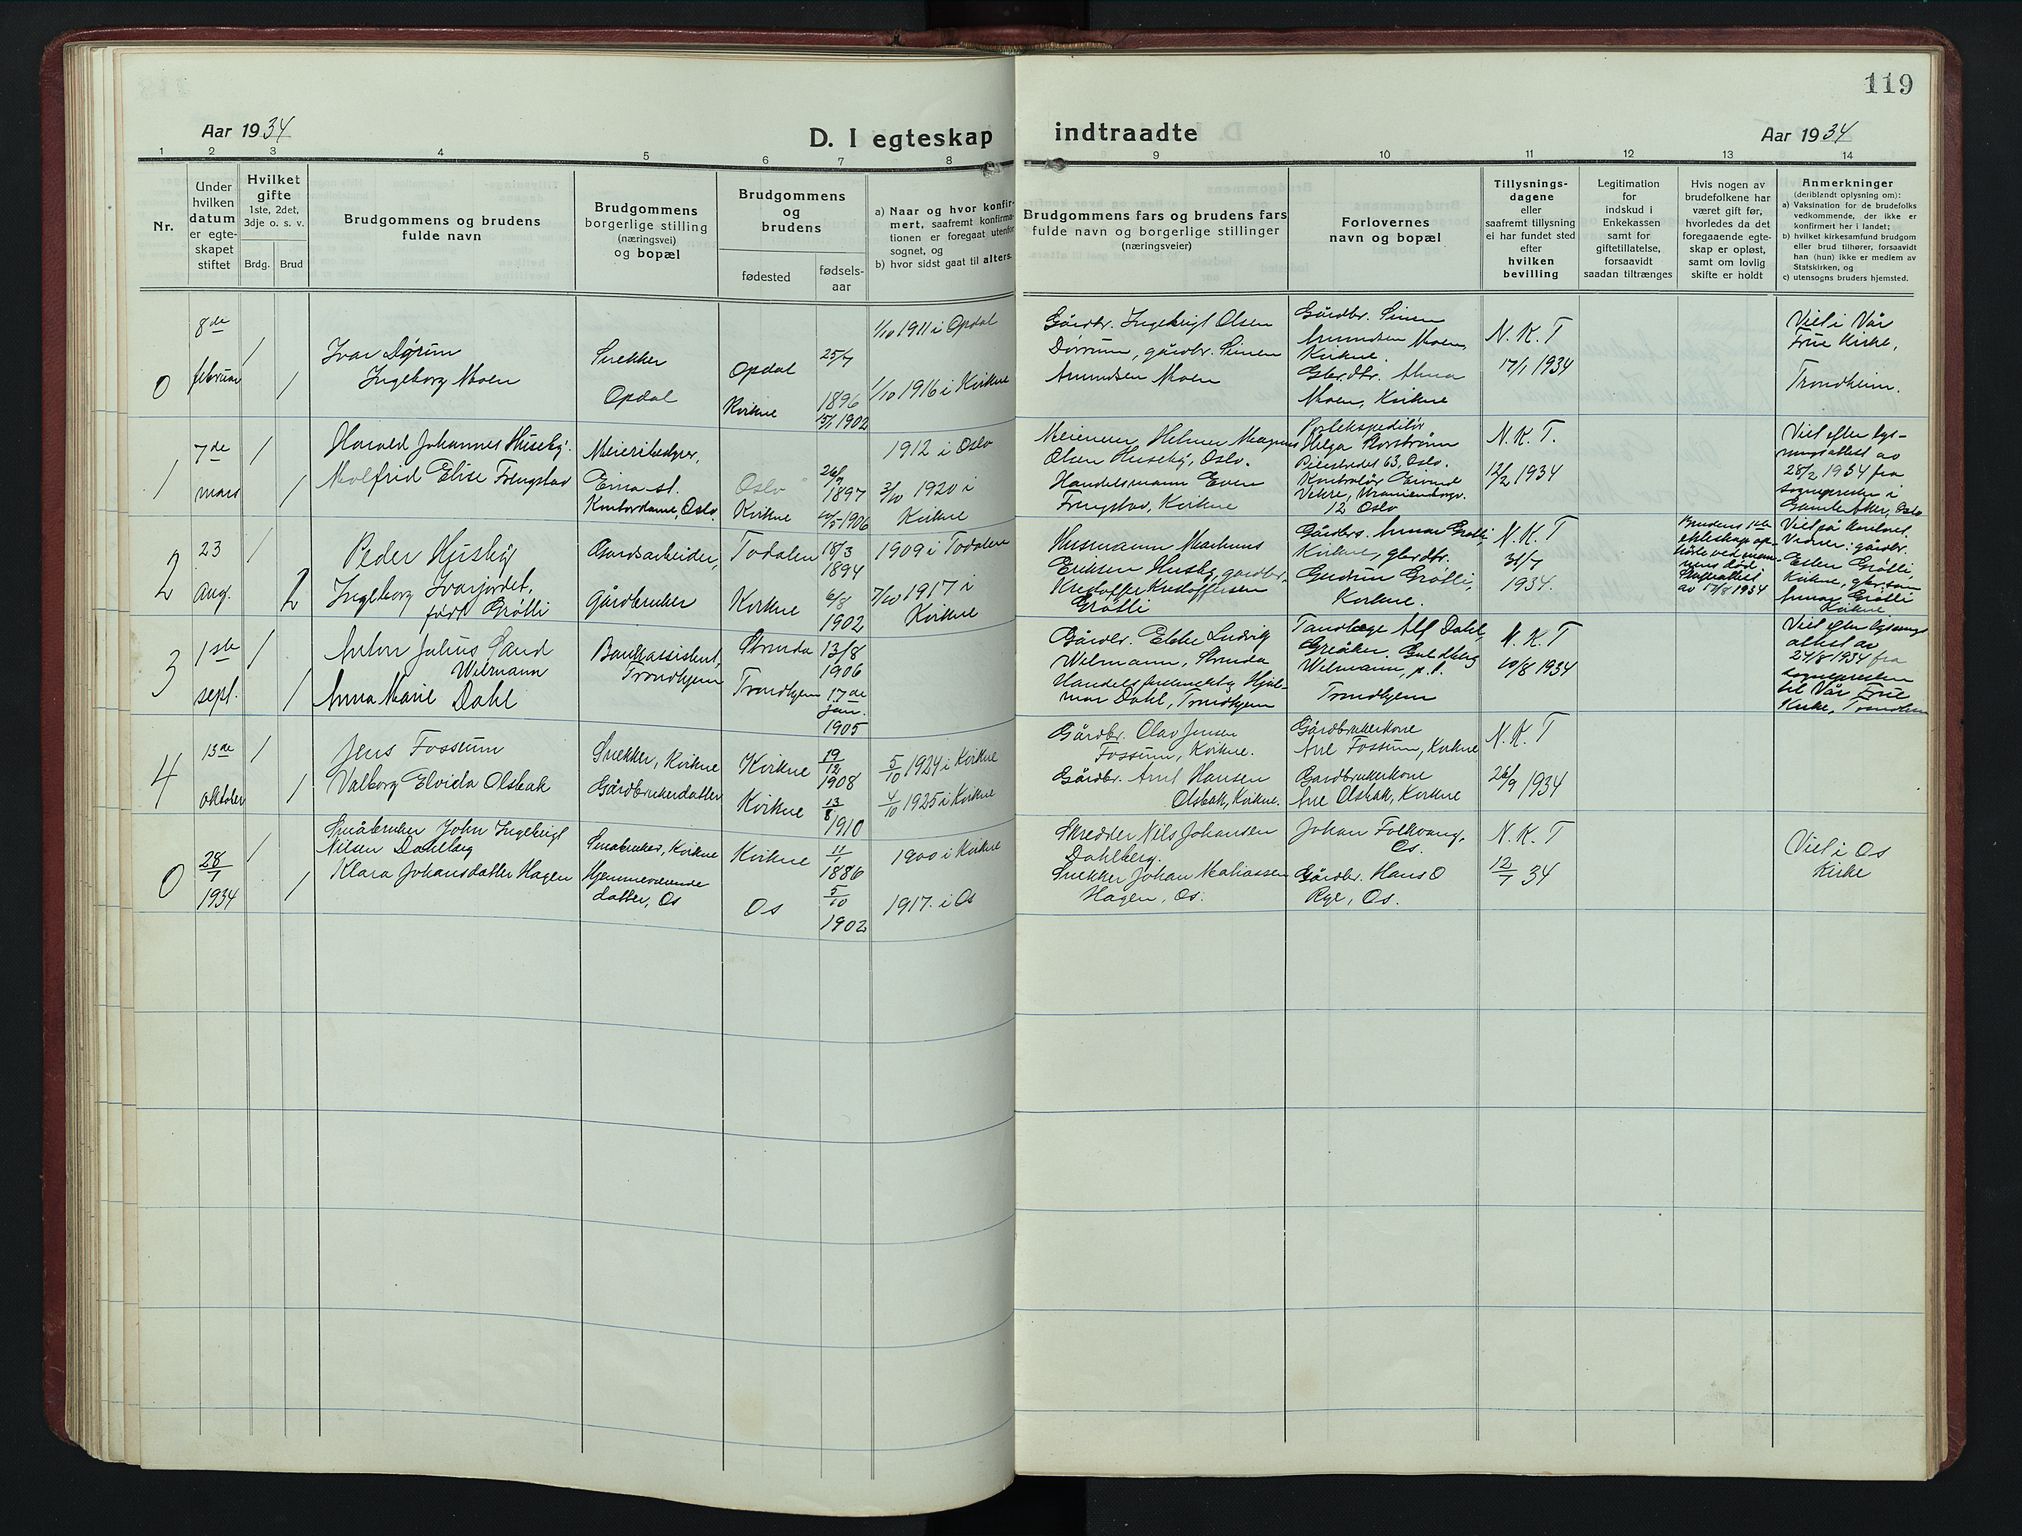 119
Aar 1934
D. I egteskap indtraadte
Aar 1934
1 2 3 4 5 6 7 8 9 10 11 12 13 14
Nr.
Under
hvilken
datum
er egte-
skapet
stiftet
Hvilket
gifte
1ste, 2det,
3dje o. s. v.
Brdg. Brud
Brudgommens og brudens
fulde navn
Brudgommens
borgerlige stilling
(næringsvei)
og bopæl
Brudgommens
og
brudens
fødested
fødsels-
aar
a) Naar og hvor konfir-
mert, saafremt konfirma-
tionen er foregaat utenfor
sognet, og
b) hvor sidst gaat til alters.
Brudgommens fars og brudens fars
fulde navn og borgerlige stillinger
(næringsveier)
Forlovernes
navn og bopæl
Tillysnings-
dagene
eller
saafremt tillysning
ei har fundet sted
efter
hvilken
bevilling
Legitimation
for
indskud i
Enkekassen
samt for
giftetillatelse,
forsaavidt
saadan tiltrænges
Hvis nogen av
brudefolkene har
været gift før,
hvorledes da det
foregaaende egte-
skap er opløst,
samt om lovlig
skifte er holdt
Anmerkninger
(deriblandt oplysning om):
a) Vaksination for de brudefolks
vedkommende, der ikke er
konfirmert her i landet;
b) hvilket kirkesamfund brudgom
eller brud tilhører, forsaavidt
han (hun) ikke er medlem av
Statskirken, og
c) utensogns bruders hjemsted.
0
8de
februar
1
1
Ivar Dørum
Ingeborg Moen
Snekker
Opdal
Opdal
Kvikne
25/7
1896
15/1 1902
1/10 1911 i Opdal
1/10 1916 i Kvikne
Gårdbr. Ingebrigt Olsen
Dørrum, gårdbr. Simen
Amundsen Moen
Gårdbr. Simen
Amundsen Moen,
Kvikne.
Gbrdbr. Alma
Moen, Kvikne
N. K. T
17/1 1934
Viet i Vår
Frue Kirke,
Trondheim.
1
7de
mars
1
1
Harald Johannes Huseby.
Molfrid Elise Frengstad
Meieribestyrer,
Eina st.
Kontordame, Oslo.
Oslo
Kvikne
26/9
1897
10/5 1906
1912 i Oslo
3/10 1920 i
Kvikne
Meierien Helmer Magnus
Olsen Huseby, Oslo.
Handelsmann Even
Frengstad, Kvikne
Postekspeditør
Helga Norstrøm
Pilestredet 63, Oslo.
Kontrolør Eivind
Vekre, Uranienborgv.
12 Oslo
N. K. T.
12/2 1934
Viet efter lys-
ningsattest av
28/2 1934 fra
sognepresten i
Gamle Aker, Oslo
2
23
aug.
1
2
Peder Husby
Ingeborg Ivarjordet,
født Grøtli
Gardsarbeider,
Gårdbruker
Todalen
Kvikne
18/3
1894
6/8
1902
1909 i Todalen
7/10 1917 i
Kvikne
Husmann Markus
Eriksen Husby, gardbr.
Kristoffer Kristoffersen
Grøtli
Gårdbr. Annar Grøtli,
Kvikne, gbrdbr.
Gudrun Grøtli,
Kvikne.
N. K. T
31/7
1934.
Brudens 1ste
ekteskap op-
hørte ved man-
nens død.
Skifteattest
av 17/8 1934
Viet på kontoret.
Vidner: gårdbr.
Esten Grøtli,
Kvikne, gbr.søn
Annar Grøtli
Kvikne
3
1ste
sept.
1
1
Anton Julius Sand
Wilmann
Anna Marie Dahl
Bankassistent,
Trondhjem
Strinda
Trondhjem
13/8
1906
17de
jan.
1905
Gårdbr. Ebbe Ludvig
Wilmann, Strinda
Handelsfuldmektig Hjal-
mar Dahl, Trondhjem
Tandlæge Alf Dahl,
Greåker, Guldberg
Wilmann, p.t.
Trondhjem
N. K. T
10/8 1934
Viet efter lysnings
attest av
24/8 1934 fra
sognepresten
til Vår Frue
Kirke, Trondheim
4
13de
oktober
1
1
Jens Fossum
Valborg Elvida Olsbak
Snekker, Kvikne
Gårdbrukerdatter
Kvikne
Kvikne
19/12
1908
13/8
1910
5/10 1924 i Kvikne
4/10 1925 i Kvikne
Gårdbr. Olav Jensen
Fossum, Kvikne.
Gårdbr. Arnt Hansen
Olsbak, Kvikne.
Gårdbrukerkone
Ane Fossum, Kvikne
Gardbrukerkone
Ane Olsbak, Kvikne
N. K. T
26/9 1934
0
28/7
1934
1
1
Småbruker John Ingebrigt
Nilsen Dahlberg
Klara Johansdatter Hagen
Småbruker, Kvikne
Hjemmeværende
datter, Os
Kvikne
Os
11/1
1886
5/10
1902
1900 i Kvikne
1917. i Os
Skredder Nils Johansen
Dahlberg.
Snekker Johan Matiassen
Hagen, Os.
Johan Folkvang,
Os.
Gårdbr. Hans O
Rye, Os.
N. K. T
12/7 34
Viet i Os
Kirke